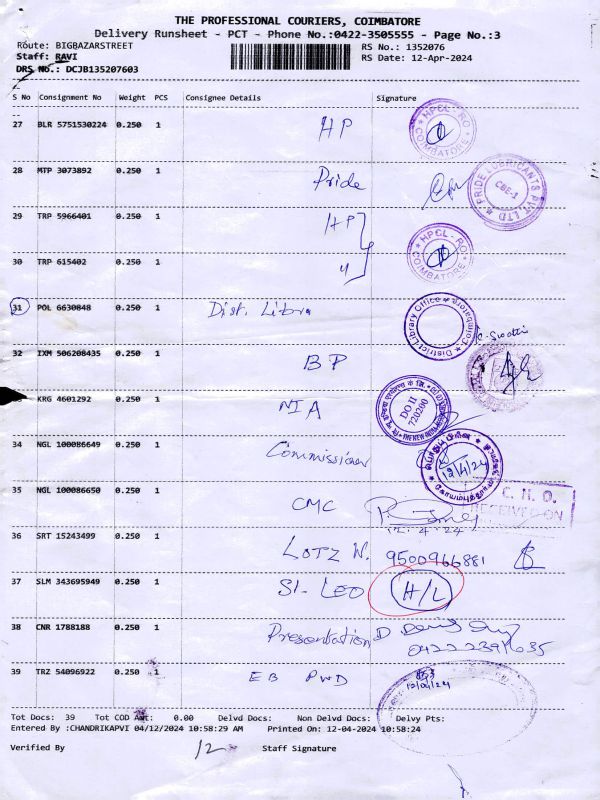 THE PROFESSIONAL COURIERS, COIMBATORE
Delivery Runsheet - PCT - Phone No.:0422-3505555 - Page No.:3
Route: BIGBAZARSTREET RS No.: 1352076
Staff: RAVI RS Date: 12-Apr-2024
DRS No.: DCJB135207603
S No Consignment No Weight PCS Consignee Details Signature
27 BLR 5751530224 0.250 1 HP HPCL - RO COIMBATORE
28 MTP 3073892 0.250 1 Pride PRIDE LUBRICANTS PVT. LTD CBE-1
29 TRP 5966401 0.250 1 HP
30 TRP 615402 0.250 1 " HPCL - RO COIMBATORE
31 POL 6630848 0.250 1 Dist. Libra District Library Office Coimbatore
32 IXM 506208435 0.250 1 BP
33 KRG 4601292 0.250 1 NIA DO II 720200
34 NGL 100086649 0.250 1 Commissioner 12/4/24
35 NGL 100086650 0.250 1 CMC C. H. O. RECEIVED ON
12.4.24
36 SRT 15243499 0.250 1 LOTZ W. 9500966881
37 SLM 343695949 0.250 1 St. LEO H/L
38 CNR 1788188 0.250 1 Presentation
39 TRZ 54096922 0.250 1 EB PWD 12/04/24
Tot Docs: 39 Tot COD Amt: 0.00 Delvd Docs: Non Delvd Docs: Delvy Pts:
Entered By :CHANDRIKAPVI 04/12/2024 10:58:29 AM Printed On: 12-04-2024 10:58:24
Verified By 12 Staff Signature